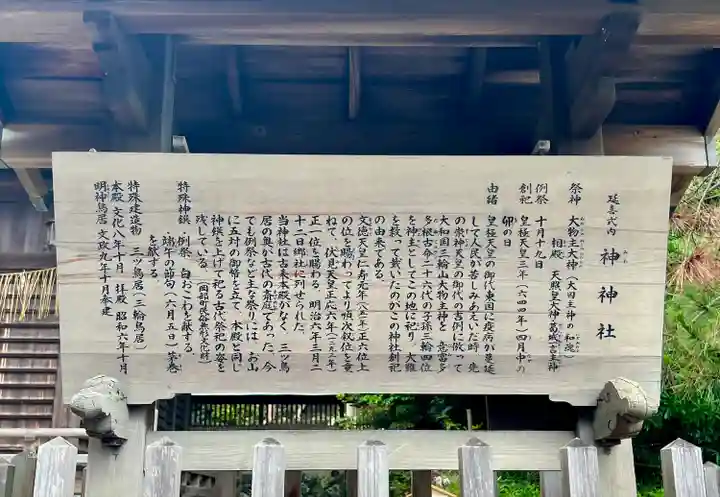 延喜式内 神神社
祭神 大物主大神（大田主神の和魂）
相殿 天照皇大神 葛城一言主神
例祭 十月十九日
創祀 皇極天皇三年（六四四年）四月中の
卯の日
由緒 皇極天皇の御代東国に疫病が蔓延
して人民が苦しみあえいだ時 先
の崇神天皇の御代の吉例に倣って
大和国三輪山大物主神を 意富多
多根古命二十六代の子孫三輪四位
を神主としてこの地に祀り 大難
を救って戴いたのがこの神社創祀
の由来である。
文徳天皇仁寿元年（八五一年）正六位上
の位を賜わってより順次叙位を重
ねて、伏見天皇正応六年（一二九三年）
正一位を賜わる 明治六年三月二
十二日郷社に列せられた。
当神社は古来本殿がなく 三ツ鳥
居の奥が古代の斎庭であった 今
ても例祭など主な祭りには お山
に五対の御幣を立て 本殿と同じ
神饌を上げて祀る古代祭祀の姿を
残している。（岡部町民俗無形文化財）
特殊神饌・例祭 白おこわを献する
端午の節句（六月五日）茅巻
を献する
特殊建造物 三ツ鳥居（三輪鳥居）
本殿 文化八年十月 拝殿 昭和六年十月
明神鳥居 文政九年十月奉建